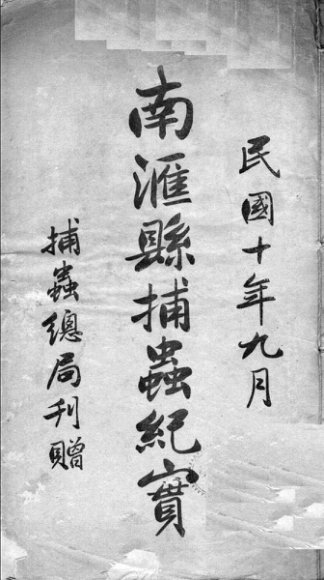 民國十年九月
南滙縣捕蟲紀實
捕蟲總局刋贈